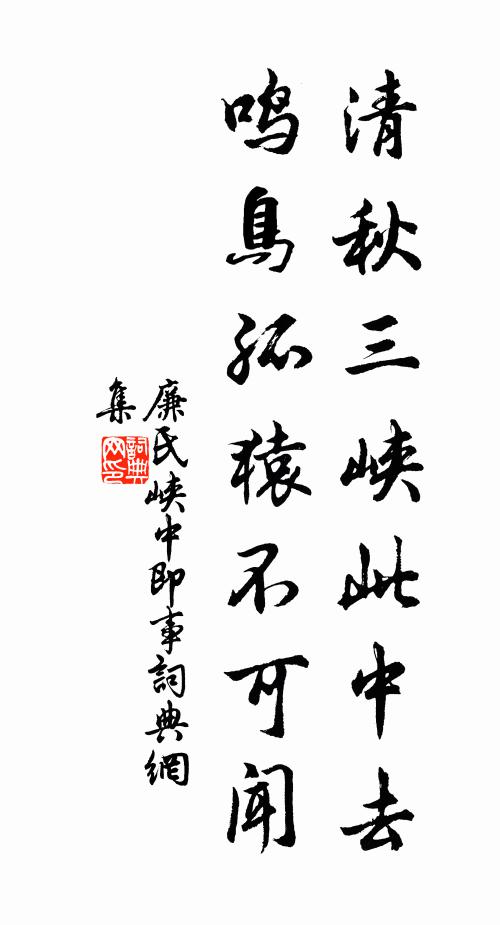 清秋三峡此中去
鸣鳥孤猿不可闻
廉氏峡中即事詞典網
集
詞典网印